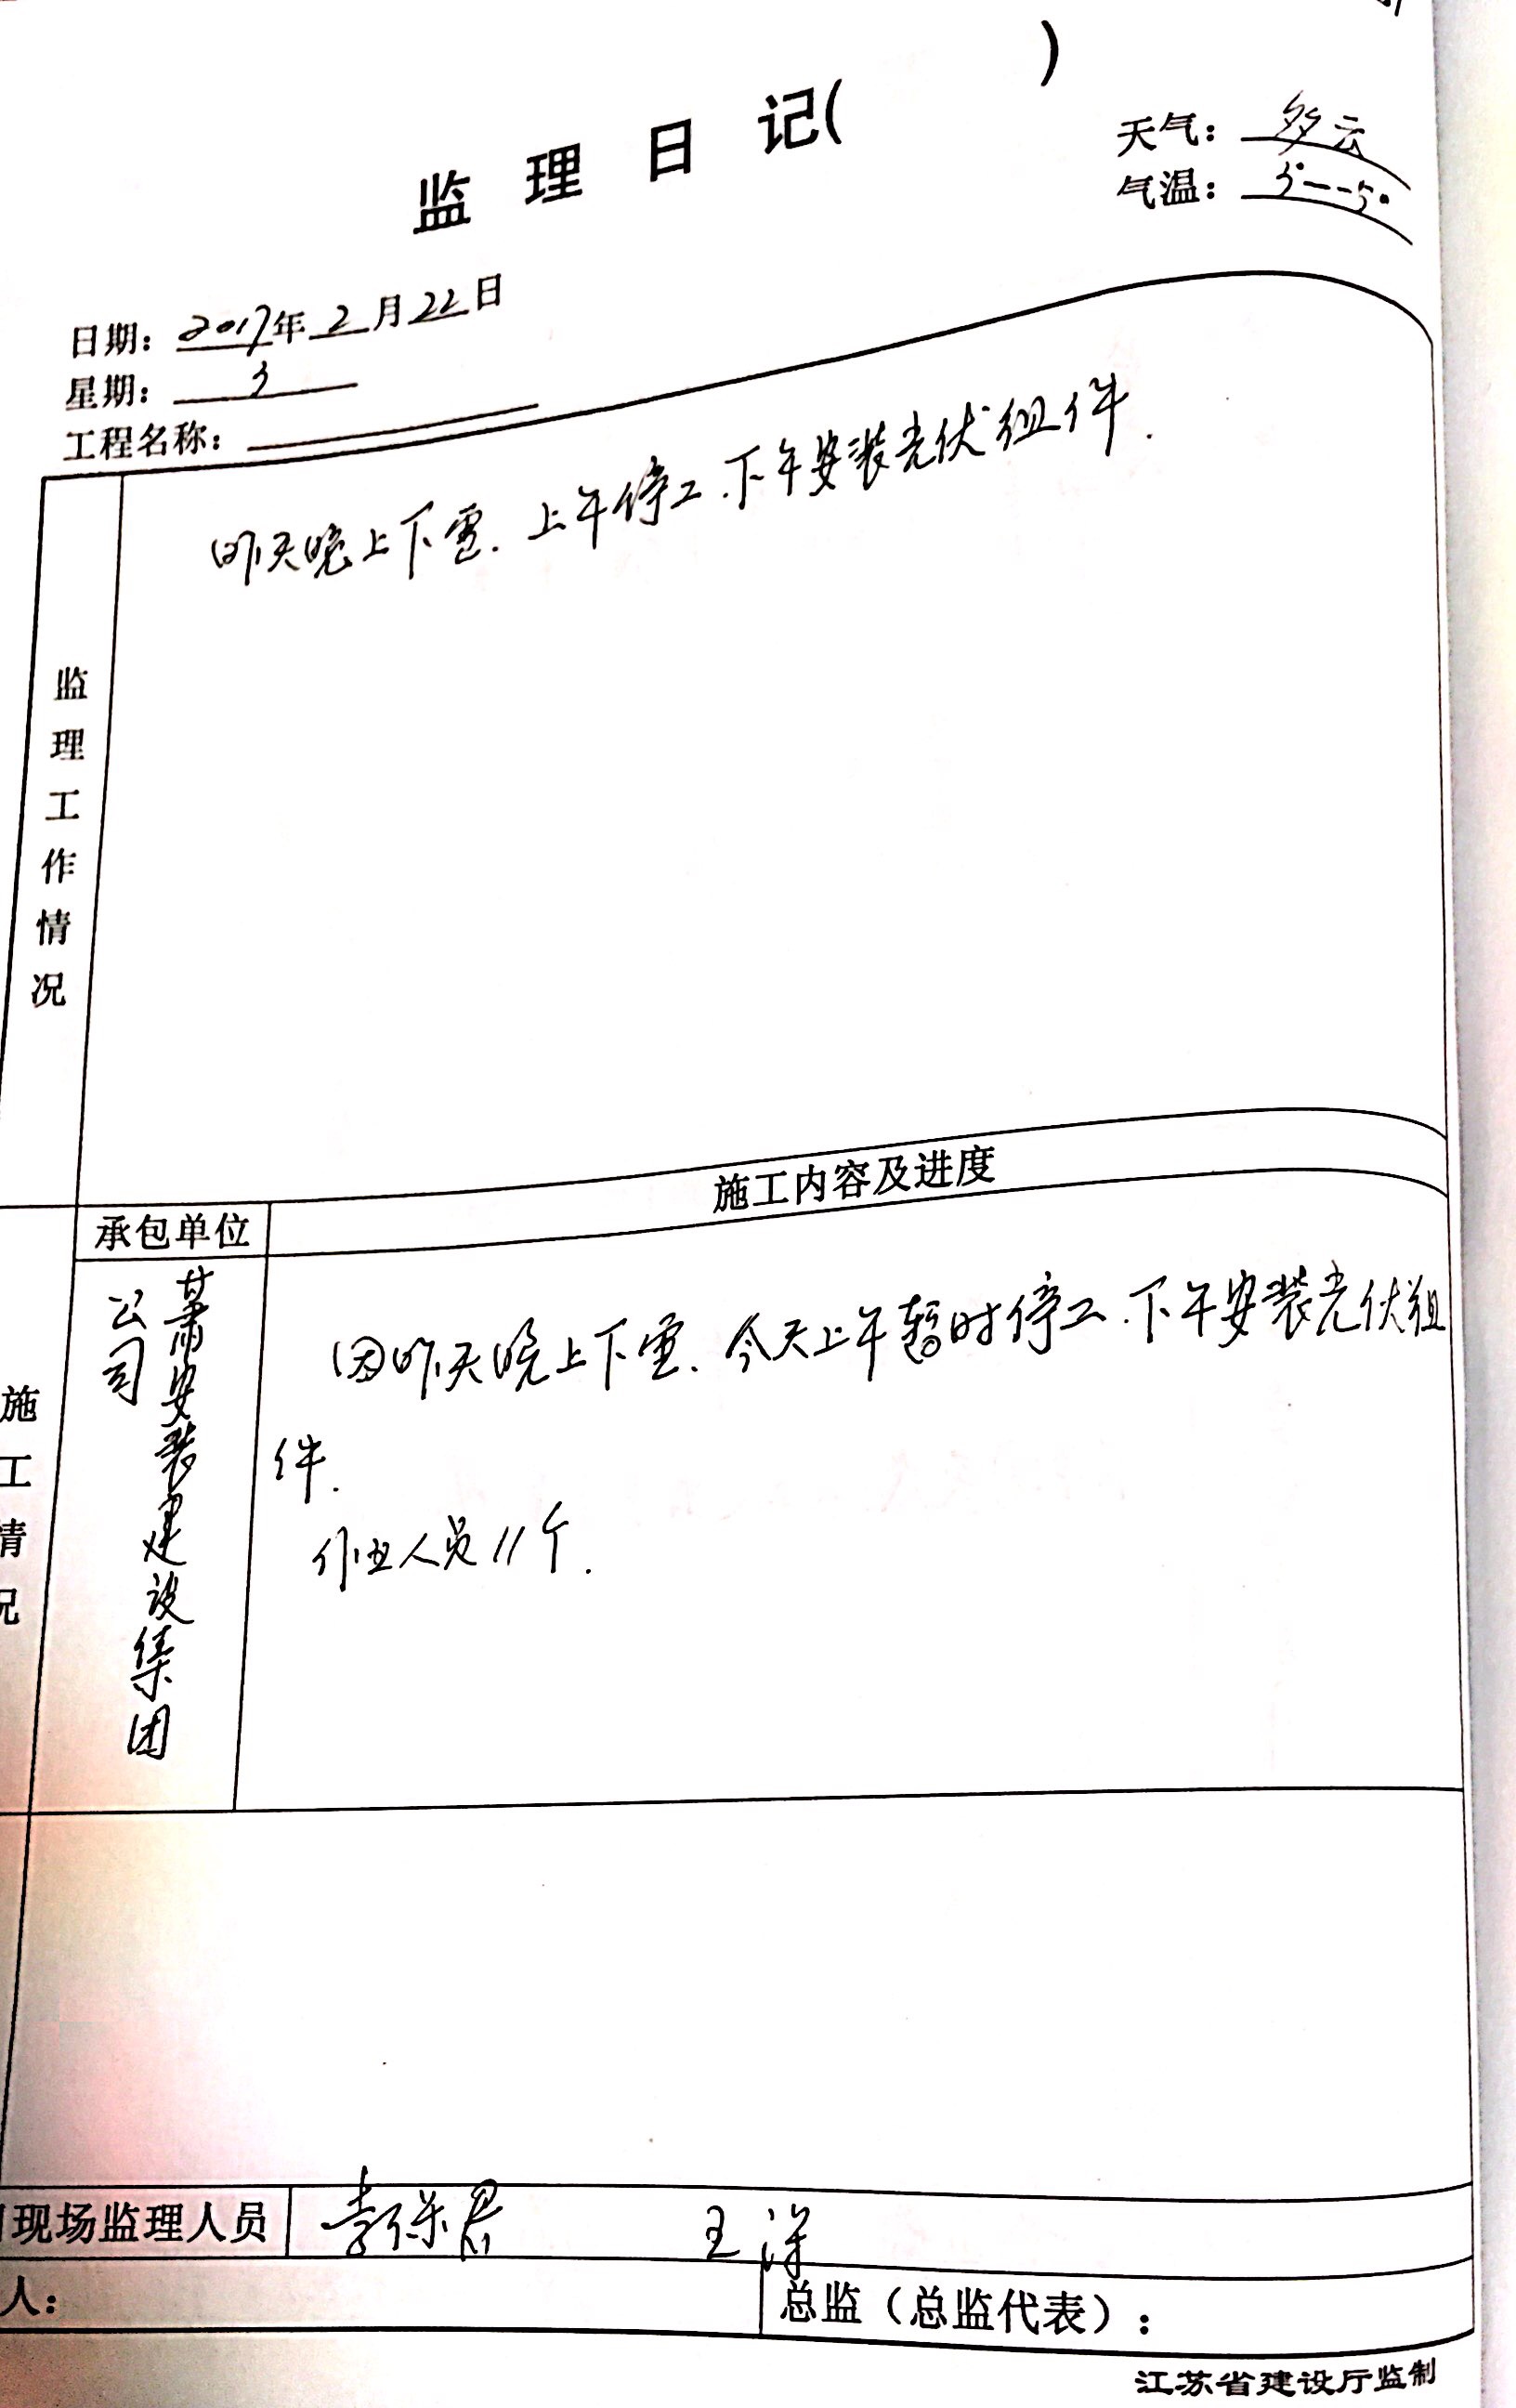 监理日记(        )
天气：多云
气温：5°--5°
日期：2017年2月22日
星期：3
工程名称：
监理工作情况
昨天晚上下雪.上午停工.下午安装光伏组件.
施工内容及进度
承包单位
施工情况
甘肃安装建设集团
公司
因昨天晚上下雪、今天上午暂时停工.下午安装光伏组
件.
作业人员11个.
现场监理人员 李保君 王洋
人：
总监（总监代表）：
江苏省建设厅监制